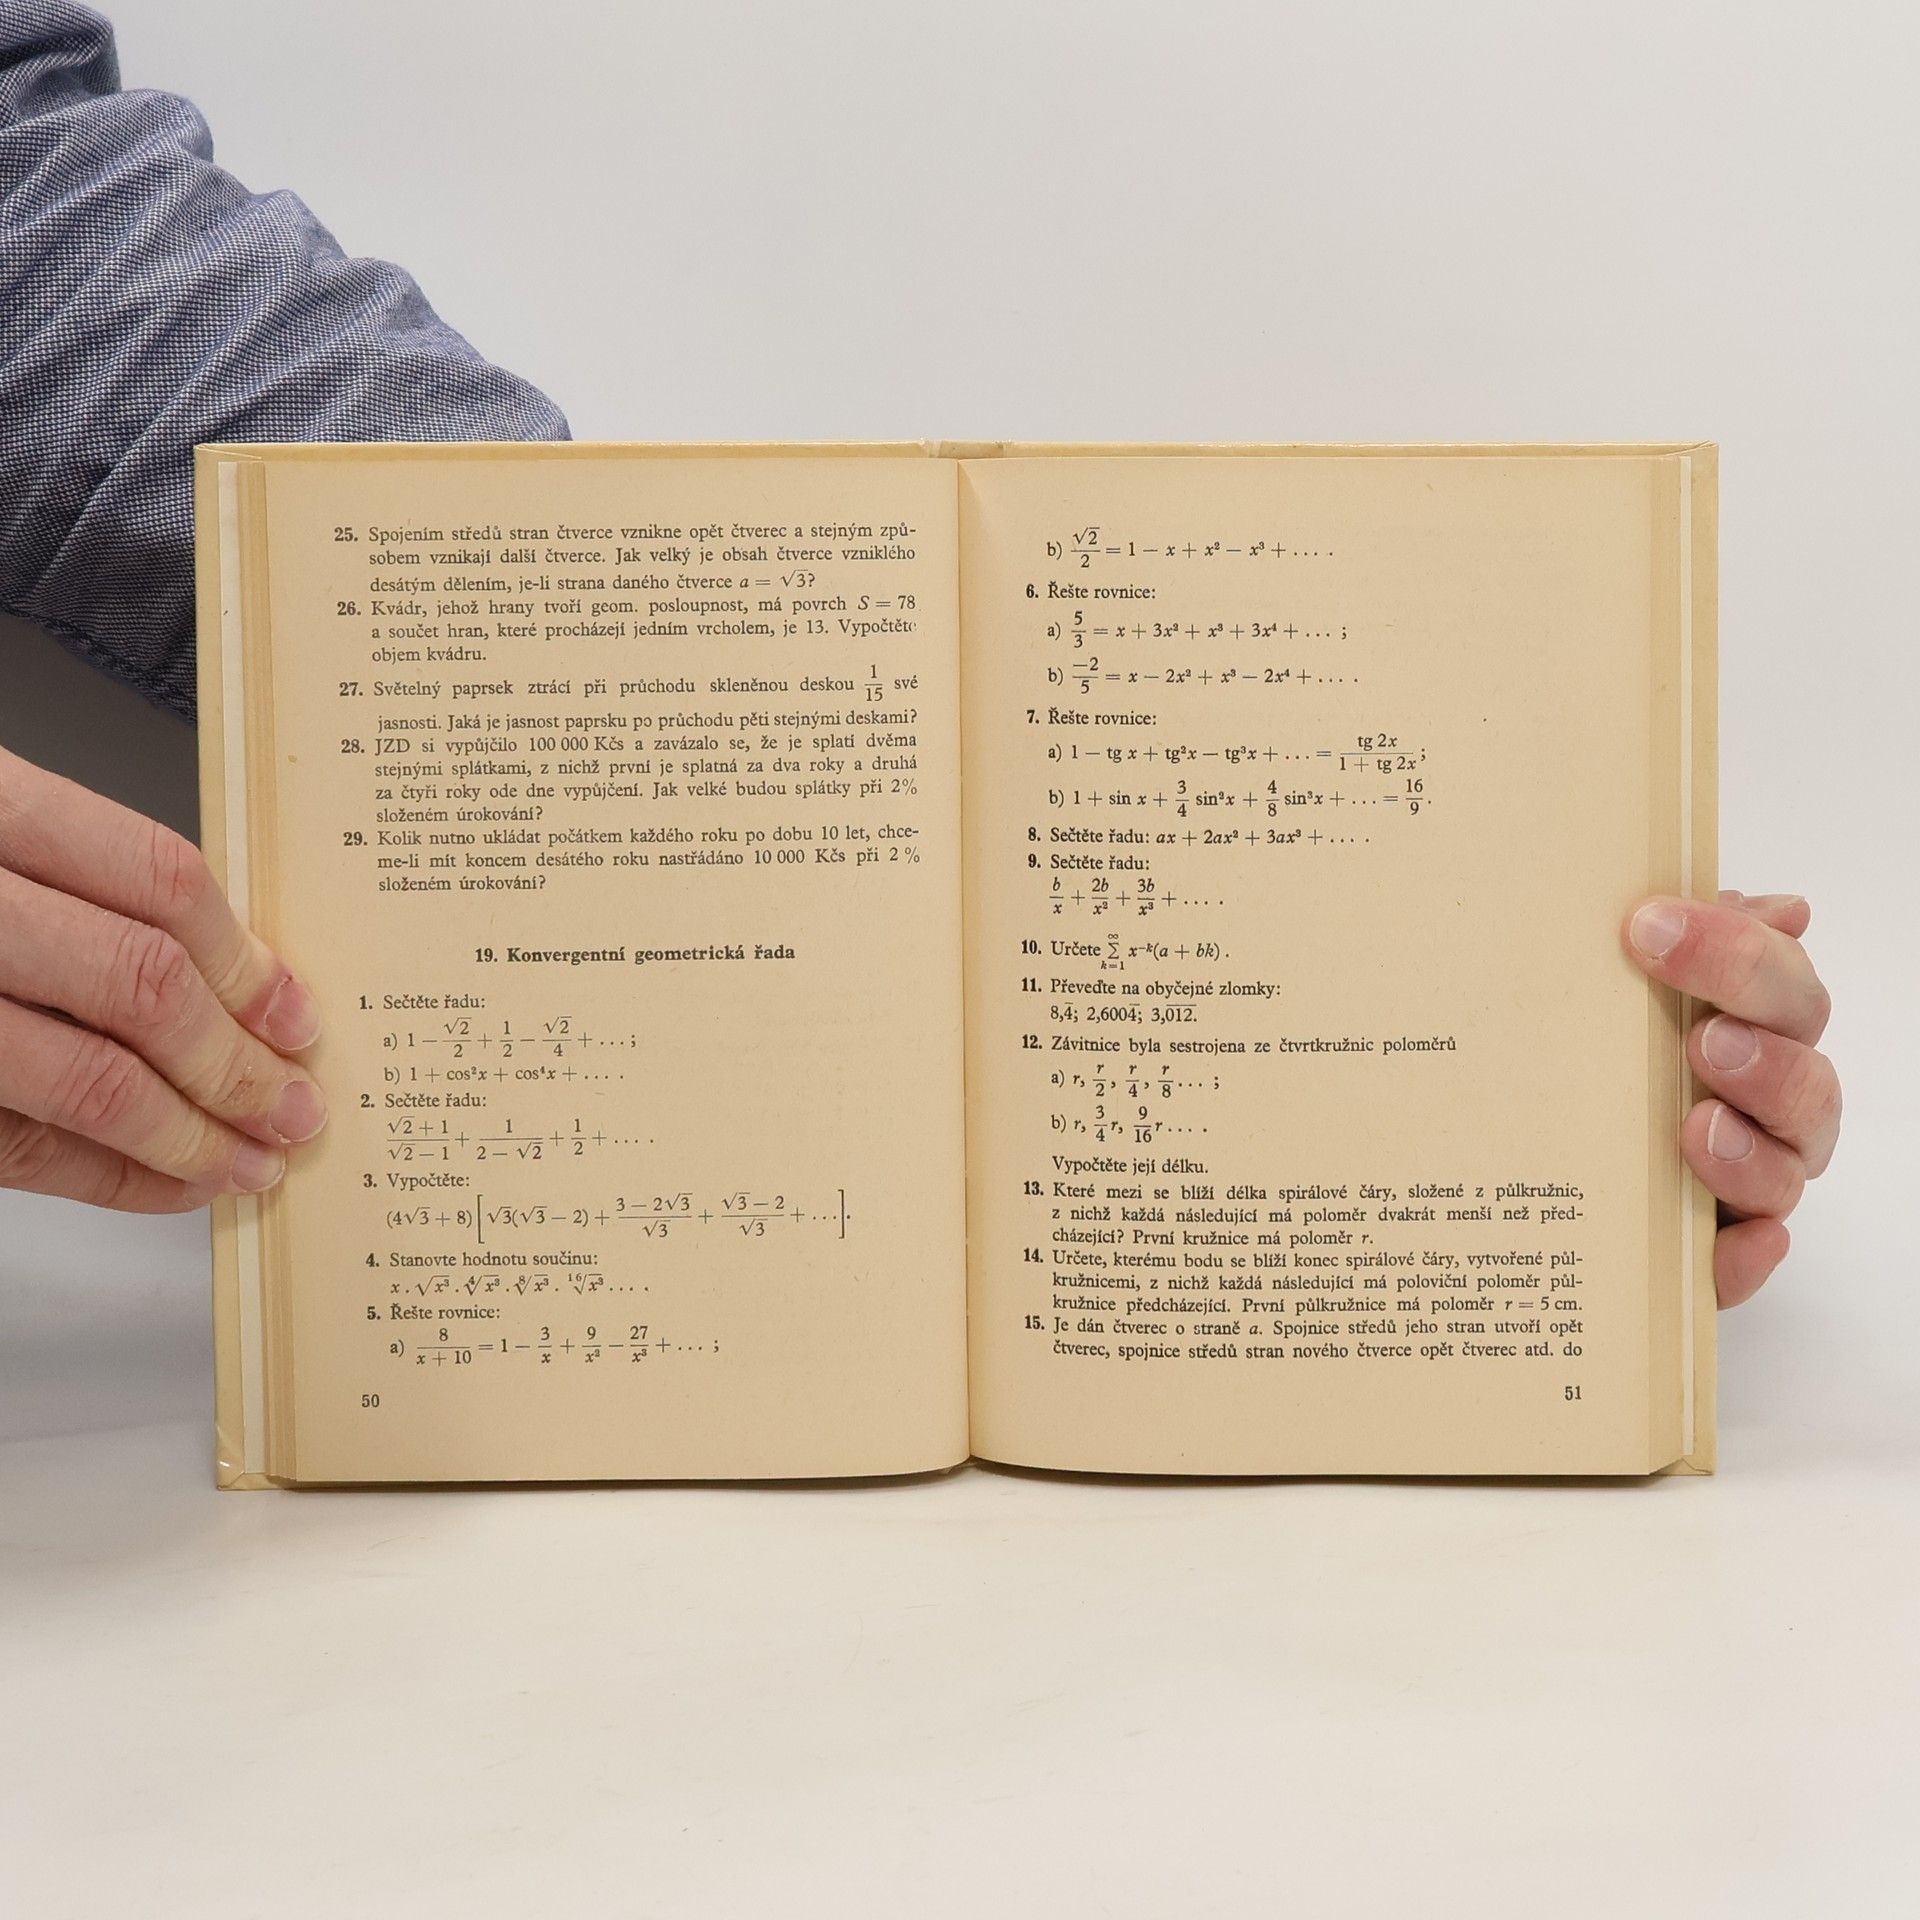 25. Spojením středů stran čtverce vznikne opět čtverec a stejným způ-
sobem vznikají další čtverce. Jak velký je obsah čtverce vzniklého
desátým dělením, je-li strana daného čtverce a = √3?
26. Kvádr, jehož hrany tvoří geom. posloupnost, má povrch S = 78
a součet hran, které procházejí jedním vrcholem, je 13. Vypočtěte
objem kvádru.
27. Světelný paprsek ztrácí při průchodu skleněnou deskou 1/15 své
jasnosti. Jaká je jasnost paprsku po průchodu pěti stejnými deskami?
28. JZD si vypůjčilo 100 000 Kčs a zavázalo se, že je splatí dvěma
stejnými splátkami, z nichž první je splatná za dva roky a druhá
za čtyři roky ode dne vypůjčení. Jak velké budou splátky při 2%
složeném úrokování?
29. Kolik nutno ukládat počátkem každého roku po dobu 10 let, chce-
me-li mít koncem desátého roku nastřádáno 10 000 Kčs při 2 %
složeném úrokování?
19. Konvergentní geometrická řada
1. Sečtěte řadu:
a) 1 − √2/2 + 1/2 − √2/4 + ... ;
b) 1 + cos²x + cos⁴x + ... .
2. Sečtěte řadu:
(√2 + 1)/(√2 − 1) + 1/(2 − √2) + 1/2 + ... .
3. Vypočtěte:
(4√3 + 8) [√3(√3 − 2) + (3 − 2√3)/√3 + (√3 − 2)/√3 + ...].
4. Stanovte hodnotu součinu:
x . √x³ . ⁴√x³ . ⁸√x³ . ¹⁶√x³ ... .
5. Řešte rovnice:
a) 8/(x + 10) = 1 − 3/x + 9/x² − 27/x³ + ... ;
50
b) √2/2 = 1 − x + x² − x³ + ... .
6. Řešte rovnice:
a) 5/3 = x + 3x² + x³ + 3x⁴ + ... ;
b) −2/5 = x − 2x² + x³ − 2x⁴ + ... .
7. Řešte rovnice:
a) 1 − tg x + tg²x − tg³x + ... = tg 2x/(1 + tg 2x) ;
b) 1 + sin x + 3/4 sin²x + 4/8 sin³x + ... = 16/9 .
8. Sečtěte řadu: ax + 2ax² + 3ax³ + ... .
9. Sečtěte řadu:
b/x + 2b/x² + 3b/x³ + ... .
10. Určete ∞ Σ k=1 x⁻ᵏ(a + bk) .
11. Převeďte na obyčejné zlomky:
8,4̅; 2,6004̅; 3,0̅1̅2̅.
12. Závitnice byla sestrojena ze čtvrtkružnic poloměrů
a) r, r/2, r/4, r/8 ... ;
b) r, 3/4 r, 9/16 r ... .
Vypočtěte její délku.
13. Které mezi se blíží délka spirálové čáry, složené z půlkružnic,
z nichž každá následující má poloměr dvakrát menší než před-
cházející? První kružnice má poloměr r.
14. Určete, kterému bodu se blíží konec spirálové čáry, vytvořené půl-
kružnicemi, z nichž každá následující má poloviční poloměr půl-
kružnice předcházející. První půlkružnice má poloměr r = 5 cm.
15. Je dán čtverec o straně a. Spojnice středů jeho stran utvoří opět
čtverec, spojnice středů stran nového čtverce opět čtverec atd. do
51